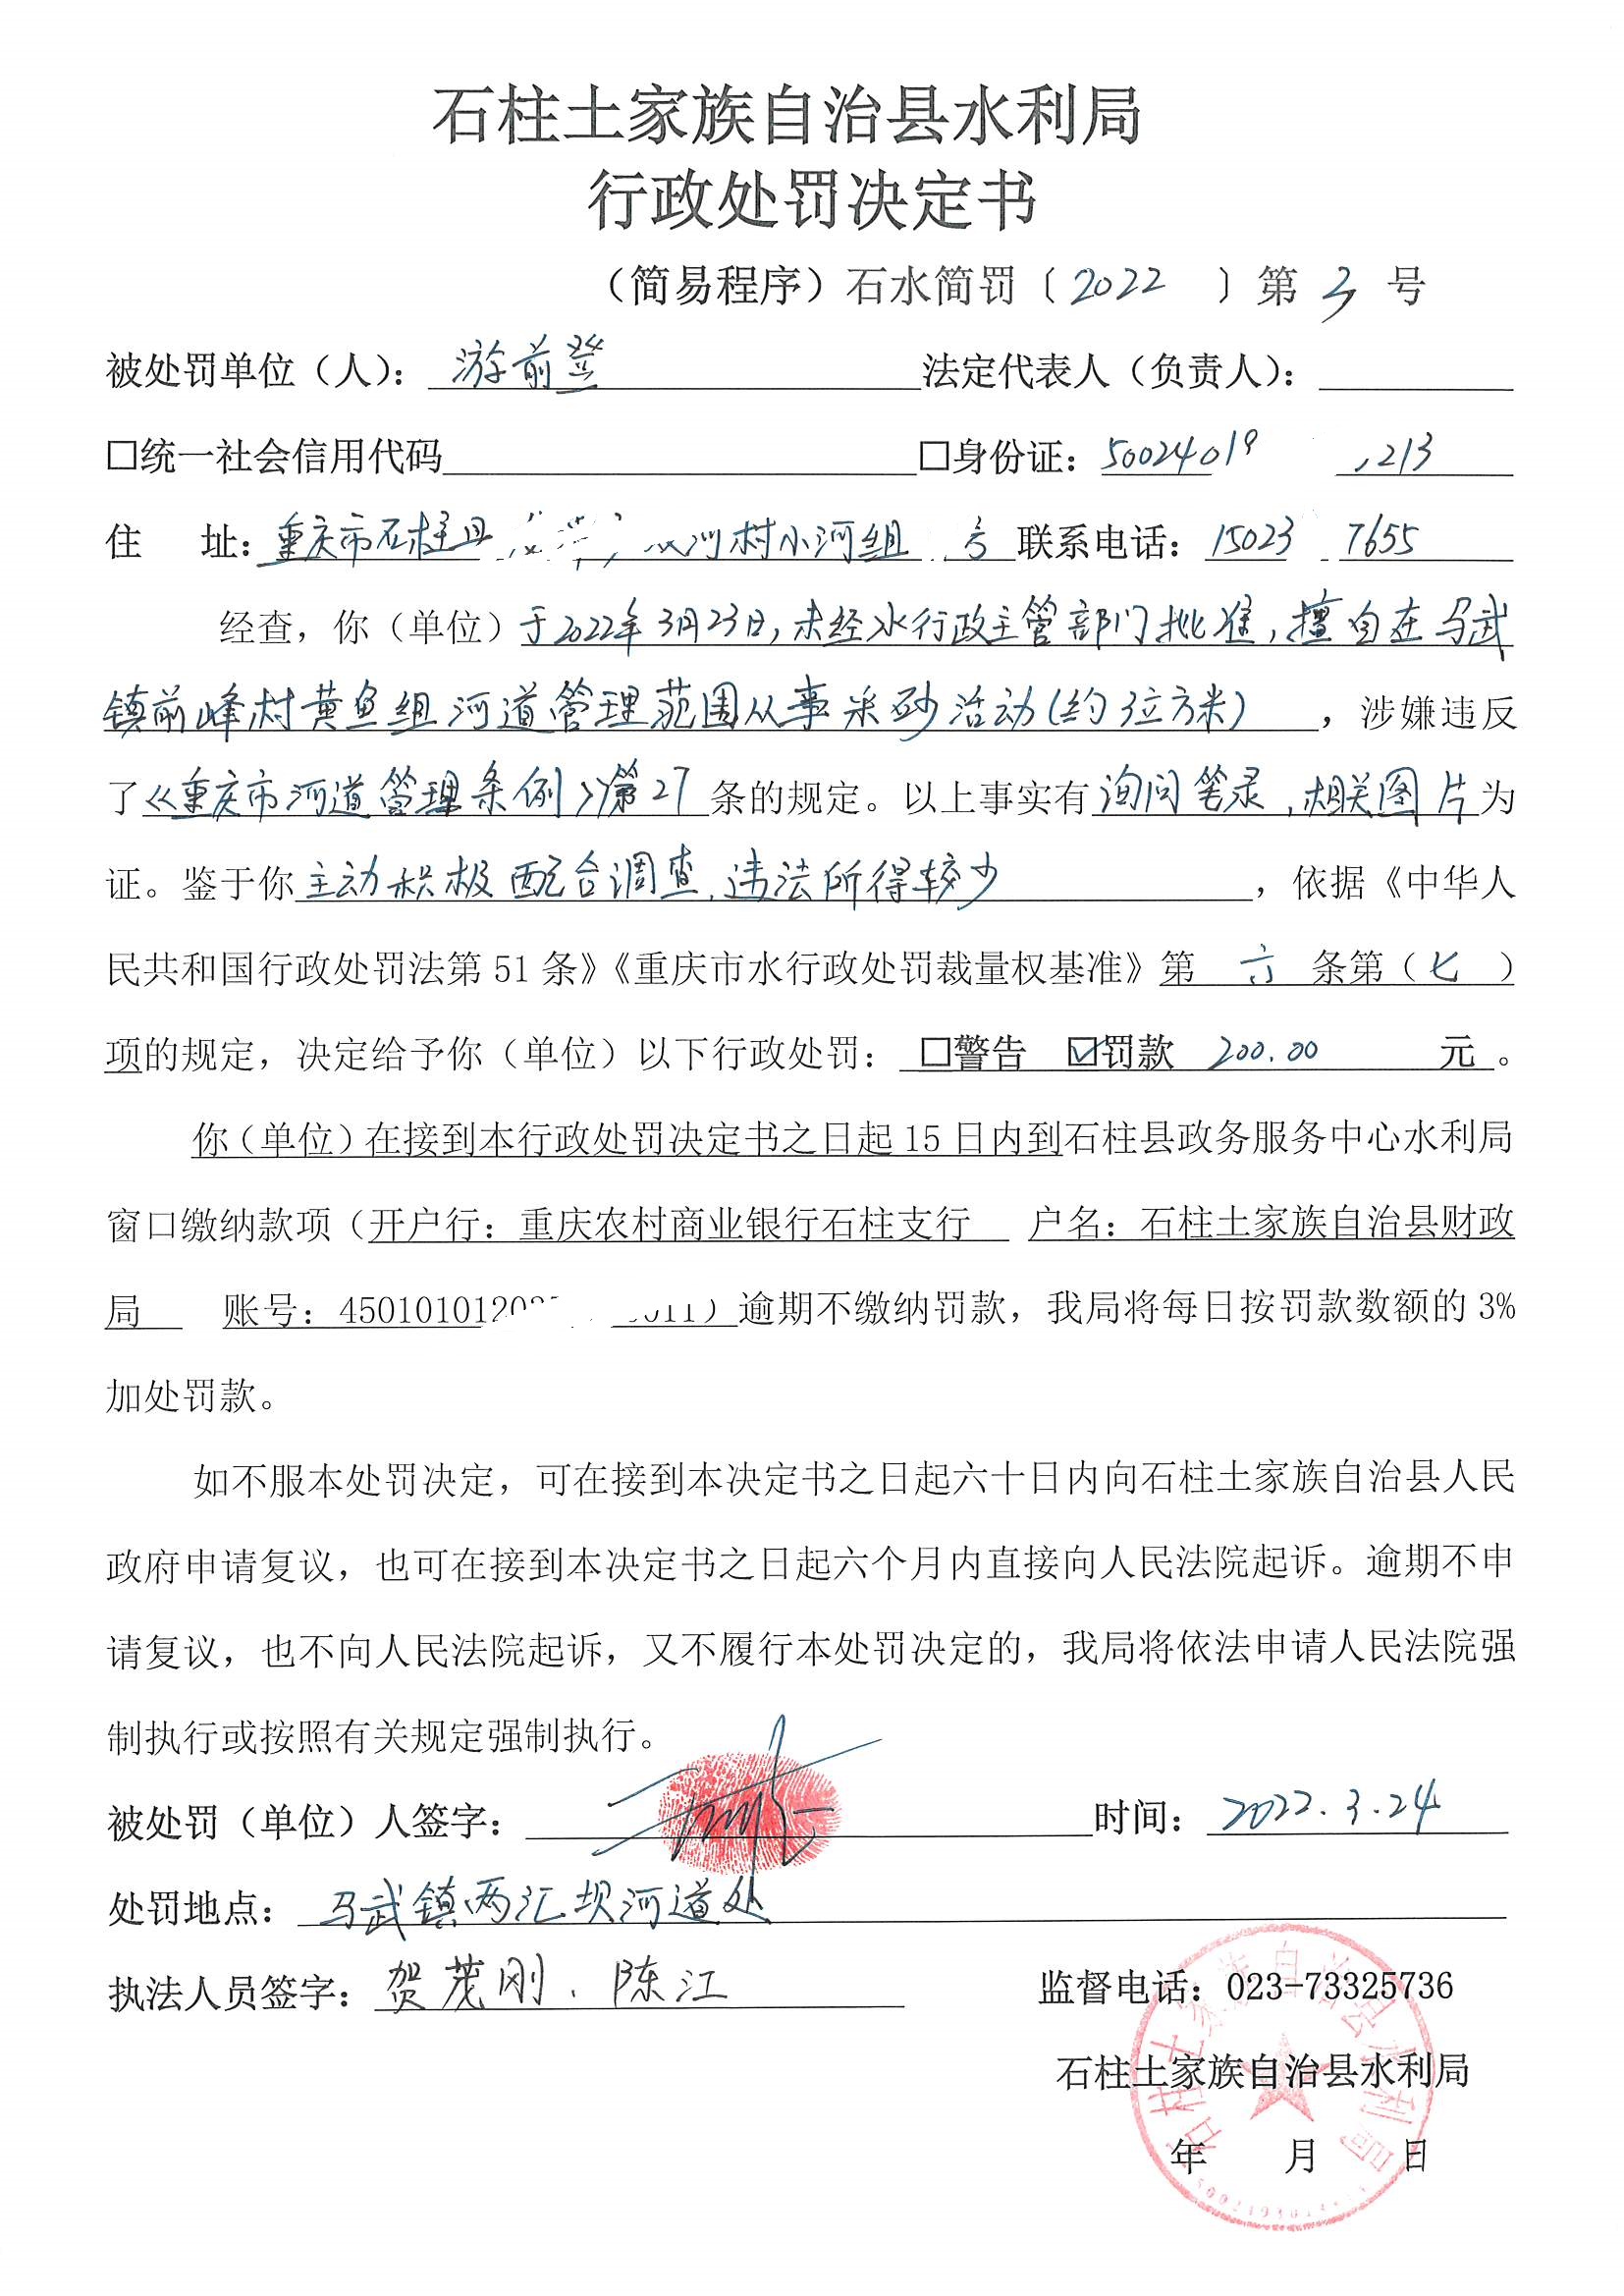 石柱土家族自治县水利局
行政处罚决定书
（简易程序）石水简罚〔2022 〕第 3 号
被处罚单位（人）：游前登 法定代表人（负责人）：
□统一社会信用代码 □身份证：50024019 213
住 址：重庆市石柱县 村小河组 号 联系电话：15023 7655
经查，你（单位）于2022年3月23日，未经水行政主管部门批准，擅自在马武
镇前峰村黄鱼组河道管理范围从事采砂活动（约3立方米），涉嫌违反
了《重庆市河道管理条例》第27条的规定。以上事实有询问笔录，相关图片为
证。鉴于你主动积极配合调查，违法所得较少，依据《中华人
民共和国行政处罚法第 51 条》《重庆市水行政处罚裁量权基准》第 六 条第（七 ）
项的规定，决定给予你（单位）以下行政处罚： □警告 ☑罚款 200.00 元 。
你（单位）在接到本行政处罚决定书之日起 15 日内到石柱县政务服务中心水利局
窗口缴纳款项（开户行：重庆农村商业银行石柱支行 户名：石柱土家族自治县财政
局 账号：450101012 011）逾期不缴纳罚款，我局将每日按罚款数额的 3%
加处罚款。
如不服本处罚决定，可在接到本决定书之日起六十日内向石柱土家族自治县人民
政府申请复议，也可在接到本决定书之日起六个月内直接向人民法院起诉。逾期不申
请复议，也不向人民法院起诉，又不履行本处罚决定的，我局将依法申请人民法院强
制执行或按照有关规定强制执行。
被处罚（单位）人签字： 时间：2022.3.24
处罚地点：马武镇两汇坝河道处
执法人员签字：贺茂刚、陈江 监督电话：023-73325736
石柱土家族自治县水利局
年 月 日
石柱土家族自治县水利局